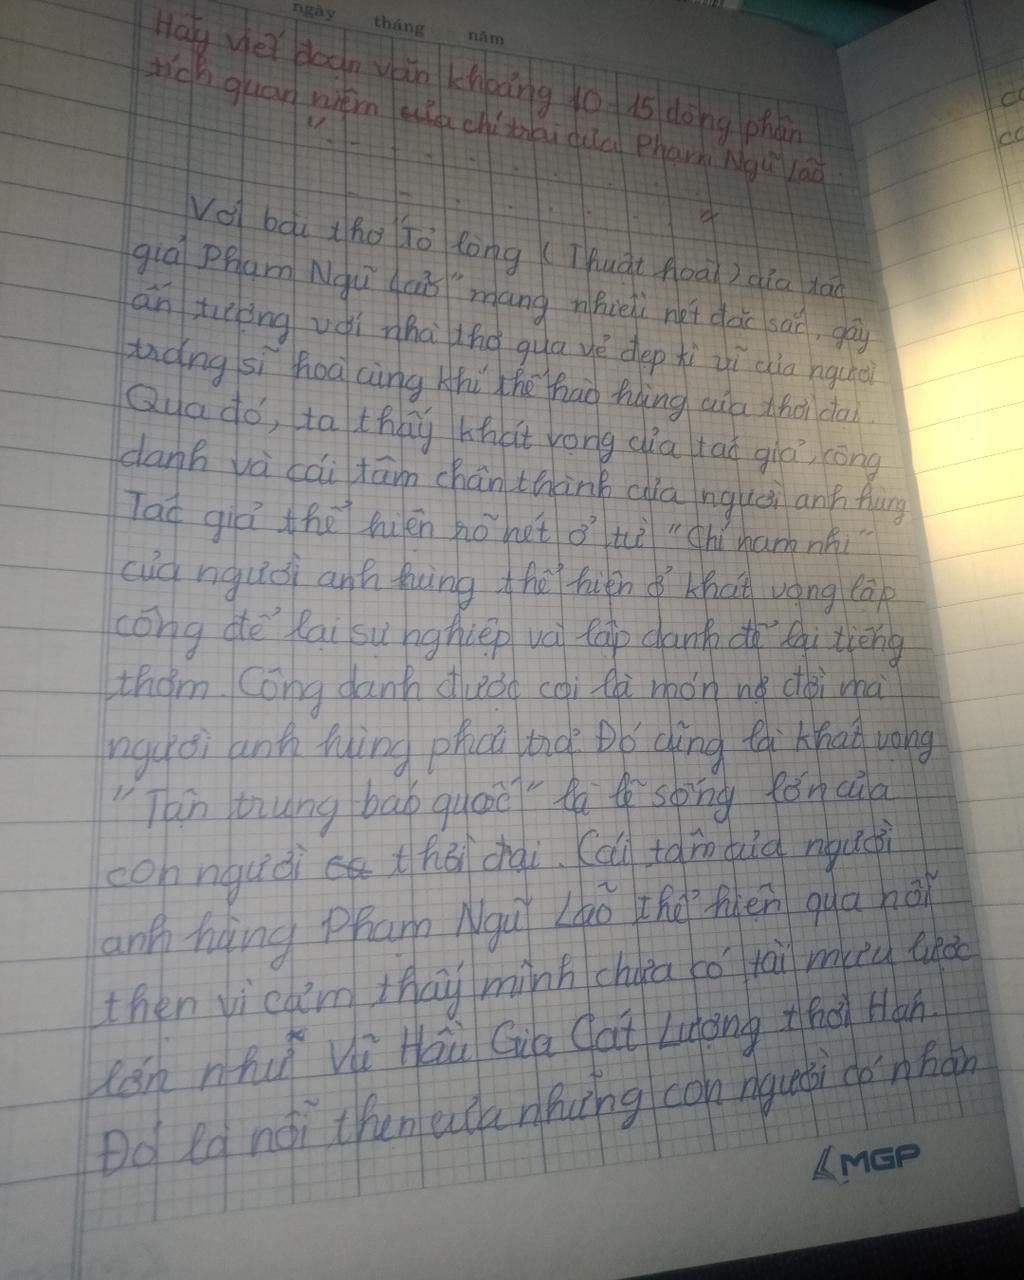 ngày tháng năm
Hãy viết đoạn văn khoảng 10 - 15 dòng phân
tích quan niệm của chí trai của Phạm Ngũ Lão
Với bài thơ "Tỏ lòng (Thuật hoài) của tác
giả Phạm Ngũ Lão" mang nhiều nét đặc sắc, gây
ấn tượng với nhà thơ qua vẻ đẹp kì vĩ của người
tráng sĩ hoà cùng khí thế hào hùng của thời đại.
Qua đó, ta thấy khát vọng của tác giả, công
danh và cái tâm chân thành của người anh hùng
Tác giả thể hiện rõ nét ở từ "Chí nam nhi"
của người anh hùng thể hiện ở khát vọng lập
công để lại sự nghiệp và lập danh để lại tiếng
thơm. Công danh được coi là món nợ đời mà
người anh hùng phải trả. Đó cũng là khát vọng
"Tận trung báo quốc" là lẽ sống lớn của
con người thời đại. Cái tâm của người
anh hùng Phạm Ngũ Lão thể hiện qua nỗi
thẹn vì cảm thấy mình chưa có tài mưu lược
lớn như Vũ Hầu Gia Cát Lượng thời Hán.
Đó là nỗi thẹn của những con người có nhân
MGP
cc
cc